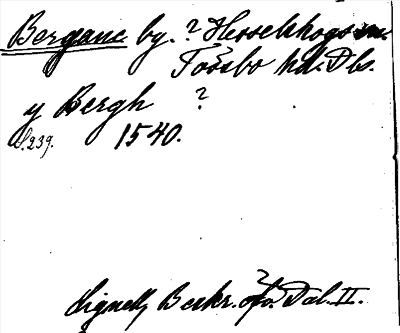 Bergane by. ? Hesselskogs sn.
Tössbo hd. Dbs.
y Bergh ?
S. 239. 1540.
Lignell, Beskr. öfv. Dal. II.